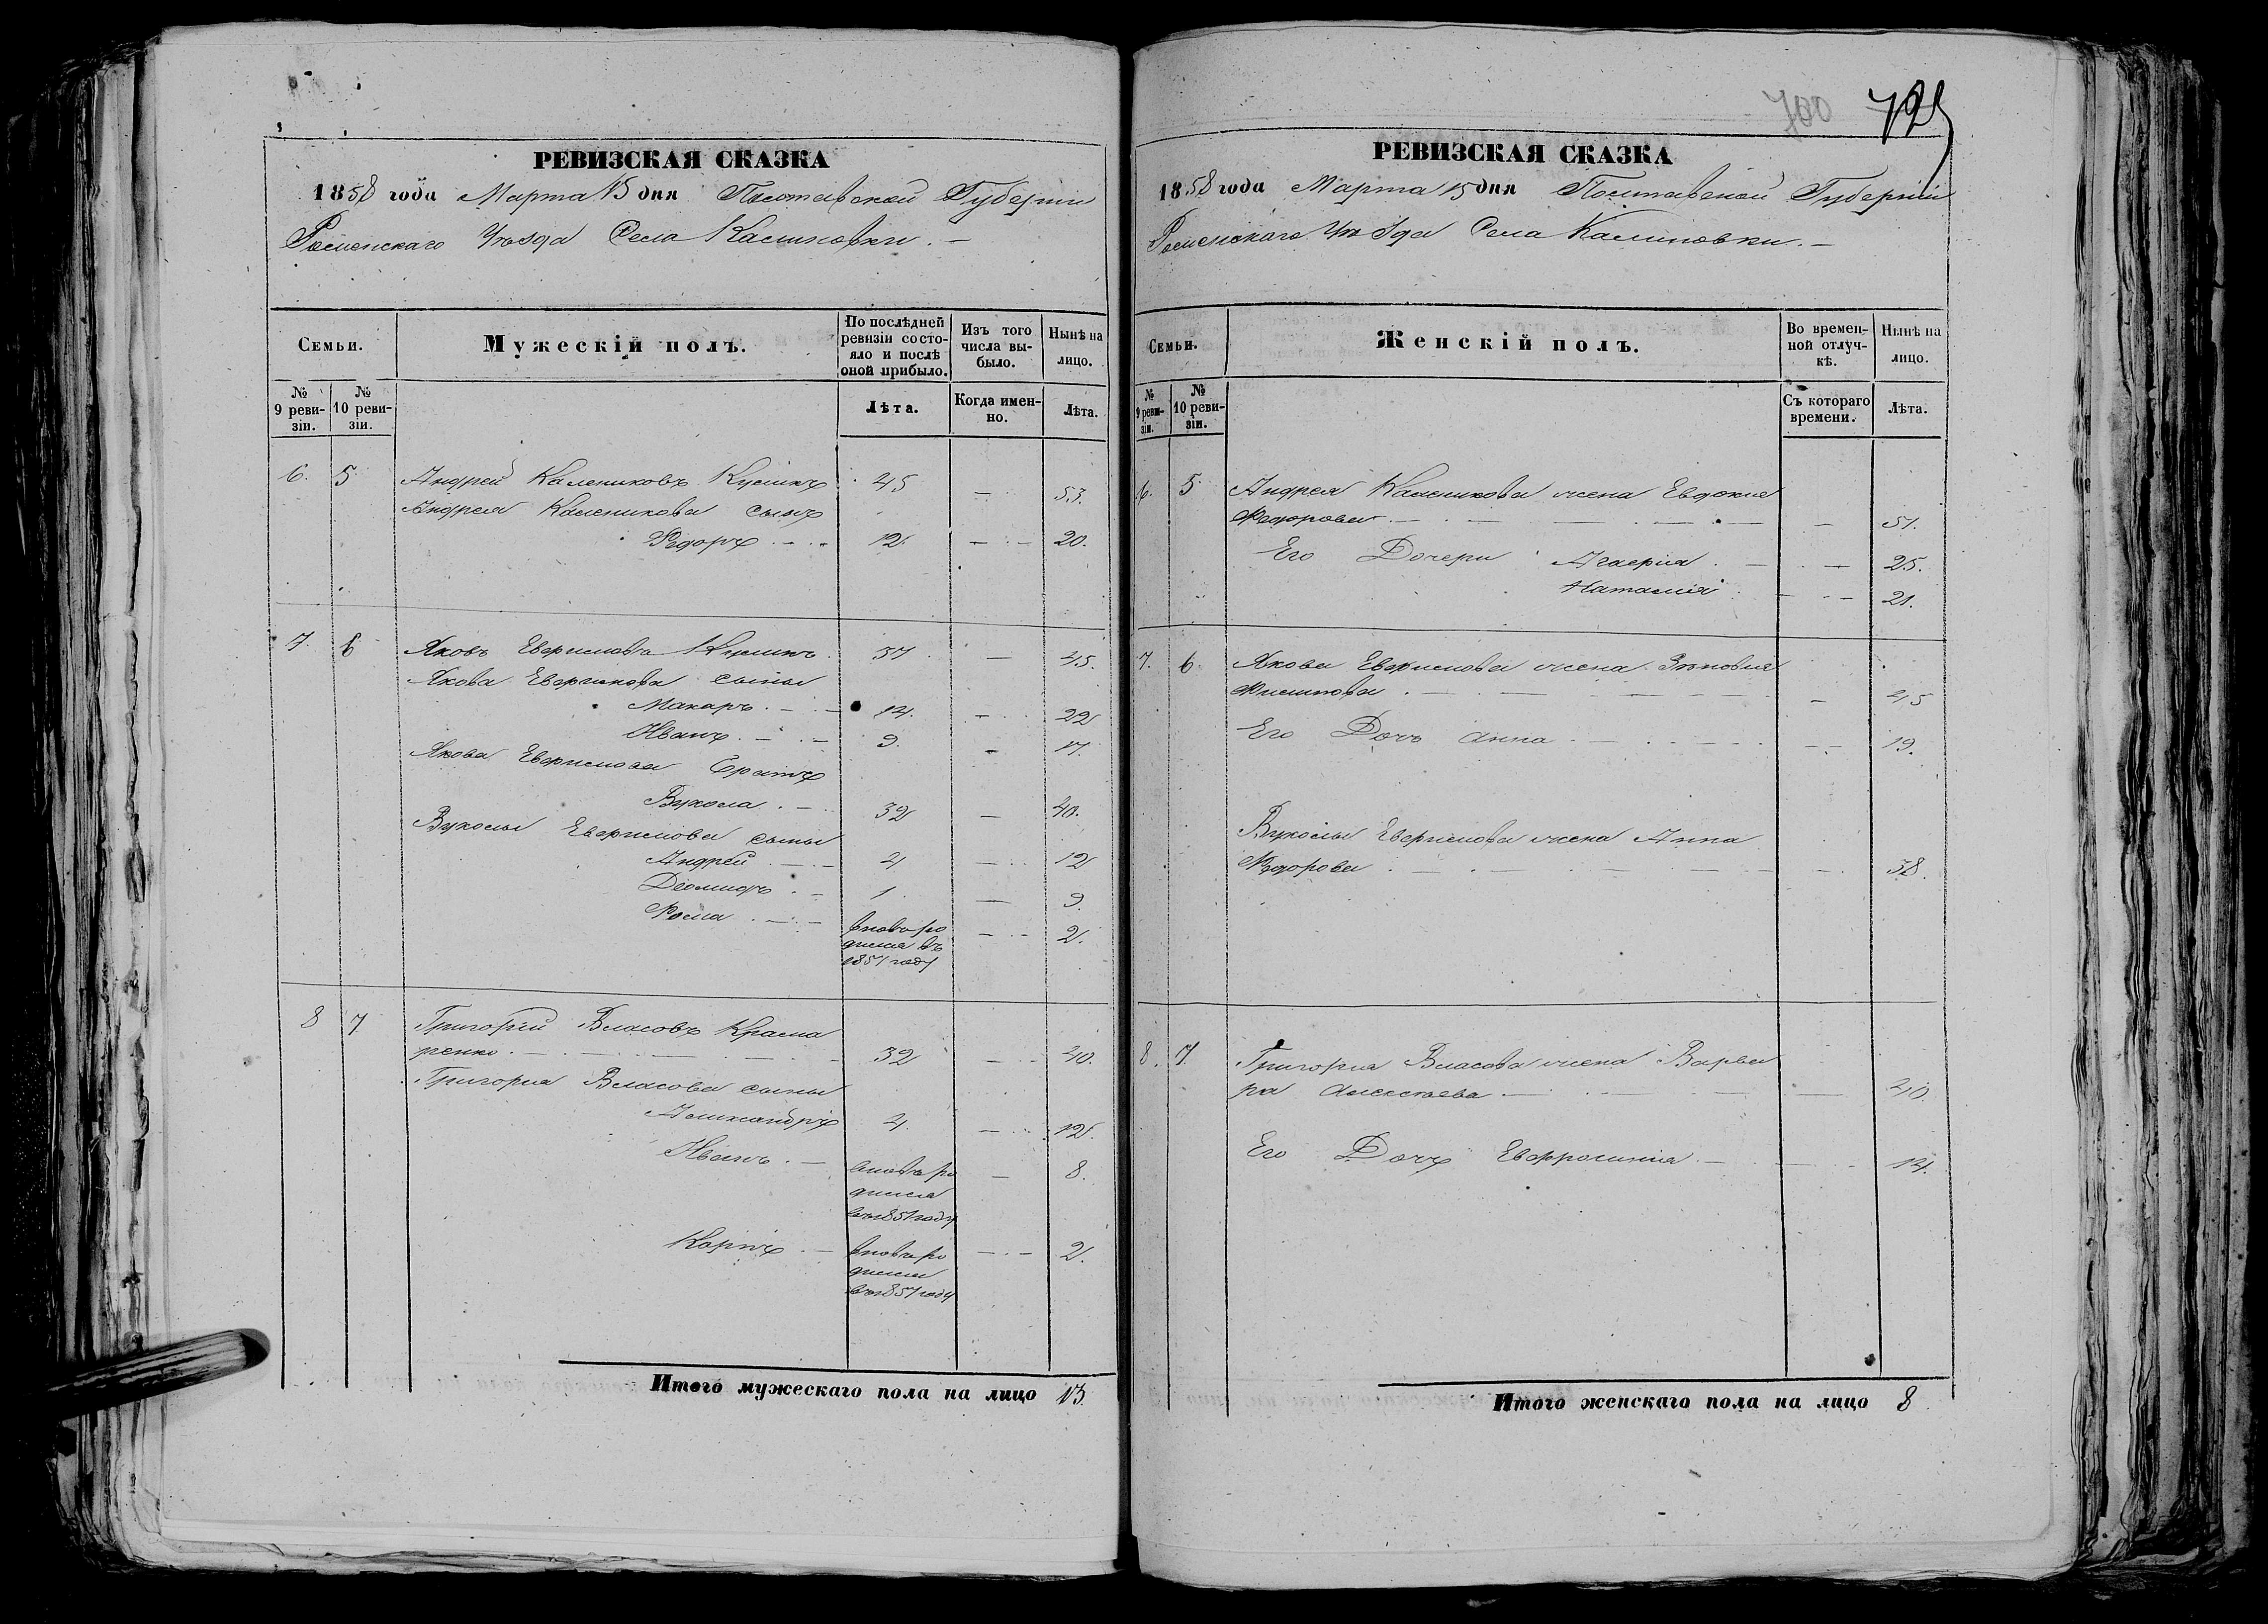 РЕВИЗСКАЯ СКАЗКА
1858 года Марта 15 дня Полтавской Губерніи
Роменскаго Уѣзда Села Калиновки. —
Семьи.
Мужескій полъ.
По послѣдней ревизіи состояло и послѣ оной прибыло.
Изъ того числа выбыло.
Нынѣ на лицо.
№ 9 ревизіи.
№ 10 ревизіи.
Лѣта.
Когда именно.
Лѣта.
6. 5 Андрей Калениковъ 45 — 53.
Андрея Каленикова сынъ
Федоръ 12. — 20.
7. 6 Яковъ Евфимовъ 37 — 45.
Якова Евфимова сыны
Макаръ 14. — 22
Иванъ 9. — 17.
Якова Евфимова братъ
Вукола 32 — 40.
Вуколы Евфимова сыны
Андрей 4 — 12
Деомидъ 1. — 9.
Фома вновь ро — 2.
дился въ
1857 году
8 7 Григорій Власовъ Крама
ренко 32 — 40.
Григорія Власова сыны
Александръ 4. — 12.
Иванъ вновь ро — 8.
дился
въ 1851 году
Карпъ вновь ро — 2.
дился
въ 1857 году
Итого мужескаго пола на лицо 13.
700 725
РЕВИЗСКАЯ СКАЗКА
1858 года Марта 15 дня Полтавской Губерніи
Роменскаго Уѣзда Села Калиновки. —
Семьи.
Женскій полъ.
Во временной отлучкѣ.
Нынѣ на лицо.
№ 9 ревизіи.
№ 10 ревизіи.
Съ котораго времени.
Лѣта.
6. 5 Андрея Каленикова жена Евдокия
Федорова — 51.
Его Дочери Агафия — 25.
Наталия — 21.
7. 6 Якова Евфимова жена Зѣновия
Филипова — 45
Его Дочь Анна — 19.
Вуколы Евфимова жена Анна
Федорова — 38.
8. 7. Григорія Власова жена Варва
ра Алексѣева — 40.
Его Дочъ Евфросинія — 14.
Итого женскаго пола на лицо 8